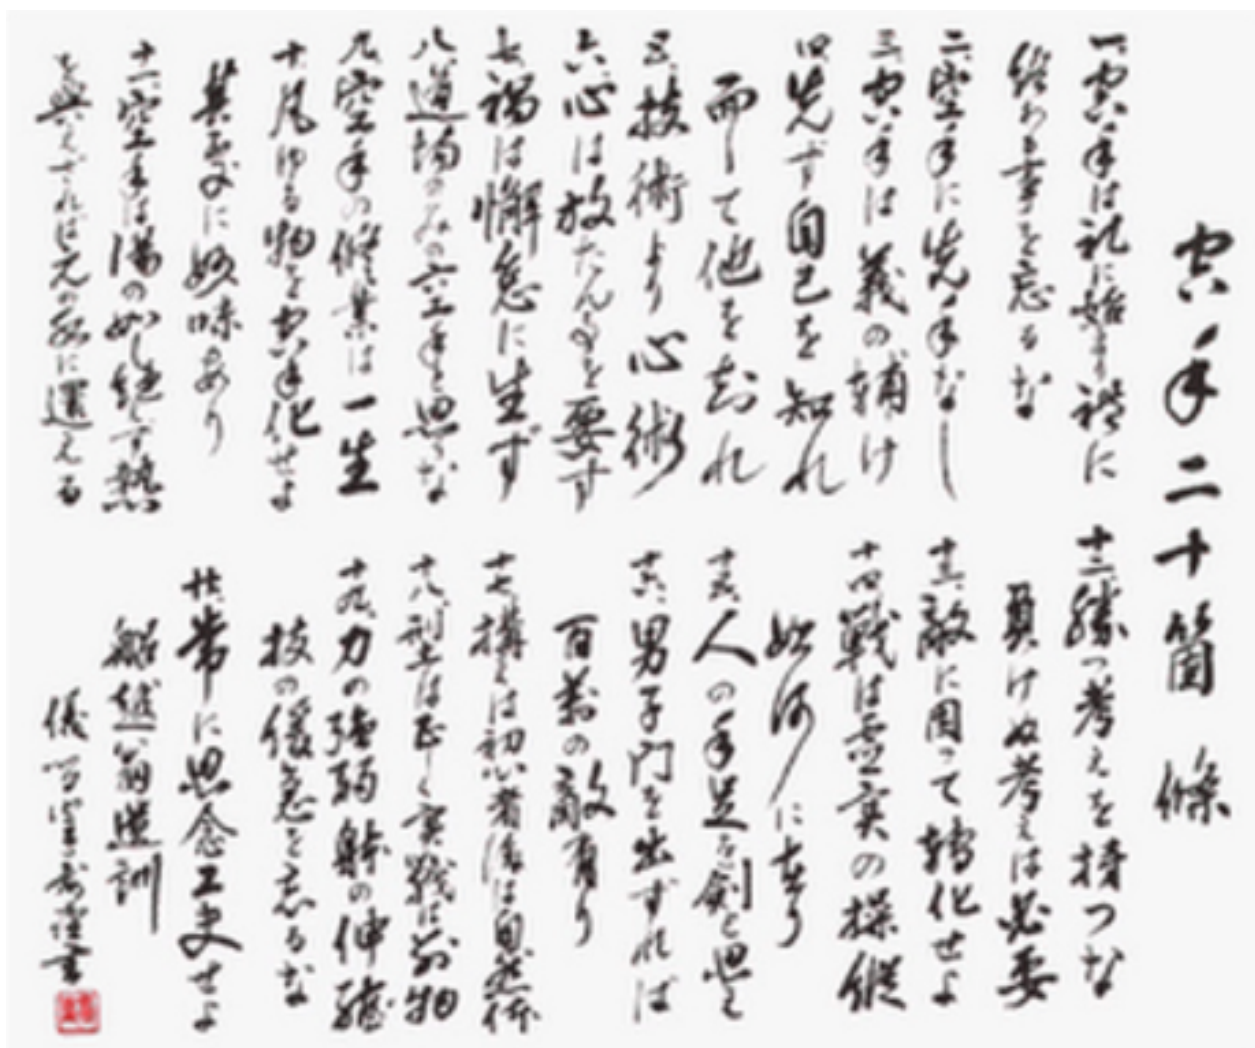 空手二十箇條
一、空手は礼に始まり礼に
終わる事を忘るな
二、空手に先手なし
三、空手は義の輔け
四、先ず自己を知れ
而して他を知れ
五、技術より心術
六、心は放たん事を要す
七、禍は懈怠に生ず
八、道場のみの空手と思うな
九、空手の修業は一生
十、凡ゆる物を空手化せよ
其処に妙味あり
十一、空手は湯の如し絶えず熱
を与えざれば元の水に還える
十二、勝つ考えを持つな
負けぬ考えは必要
十三、敵に因って転化せよ
十四、戦は虚実の操縦
如何に在り
十五、人の手足を剣と思え
十六、男子門を出ずれば
百万の敵有り
十七、構えは初心者後は自然体
十八、型は正しく実戦は別物
十九、力の強弱躰の伸縮
技の緩急を忘るな
廿、常に思念工夫せよ
船越翁遺訓
書